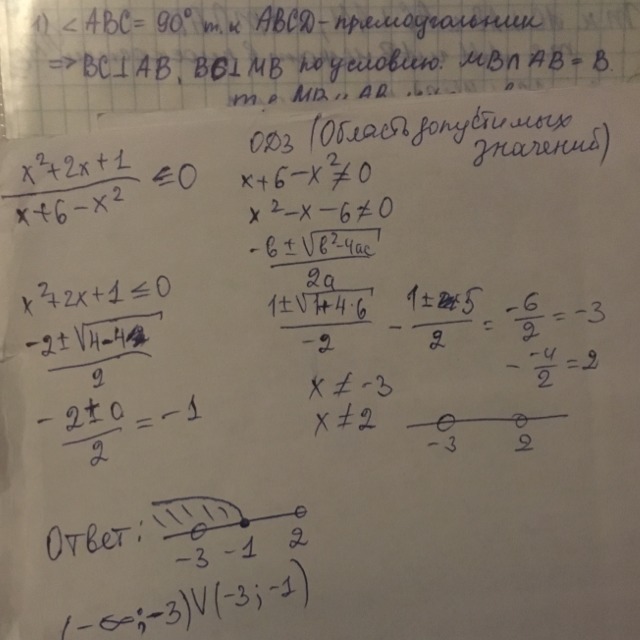 1) ∠ABC = 90° т.к ABCD - прямоугольник
⇒ BC⊥AB, BC⊥MB по условию. MB∩AB = B
x²+2x+1 / x+6-x² ≤ 0
ОДЗ (Область допустимых значений)
x+6-x² ≠ 0
x²-x-6 ≠ 0
-b±√b²-4ac / 2a
1±√1+4·6 / -2 - 1±5 / 2 = -6/2 = -3
- -4/2 = 2
x ≠ -3
x ≠ 2
-3 2
x²+2x+1 ≤ 0
-2±√4-4 / 2
- 2±0 / 2 = -1
Ответ:
-3 -1 2
(-∞;-3)V(-3;-1)